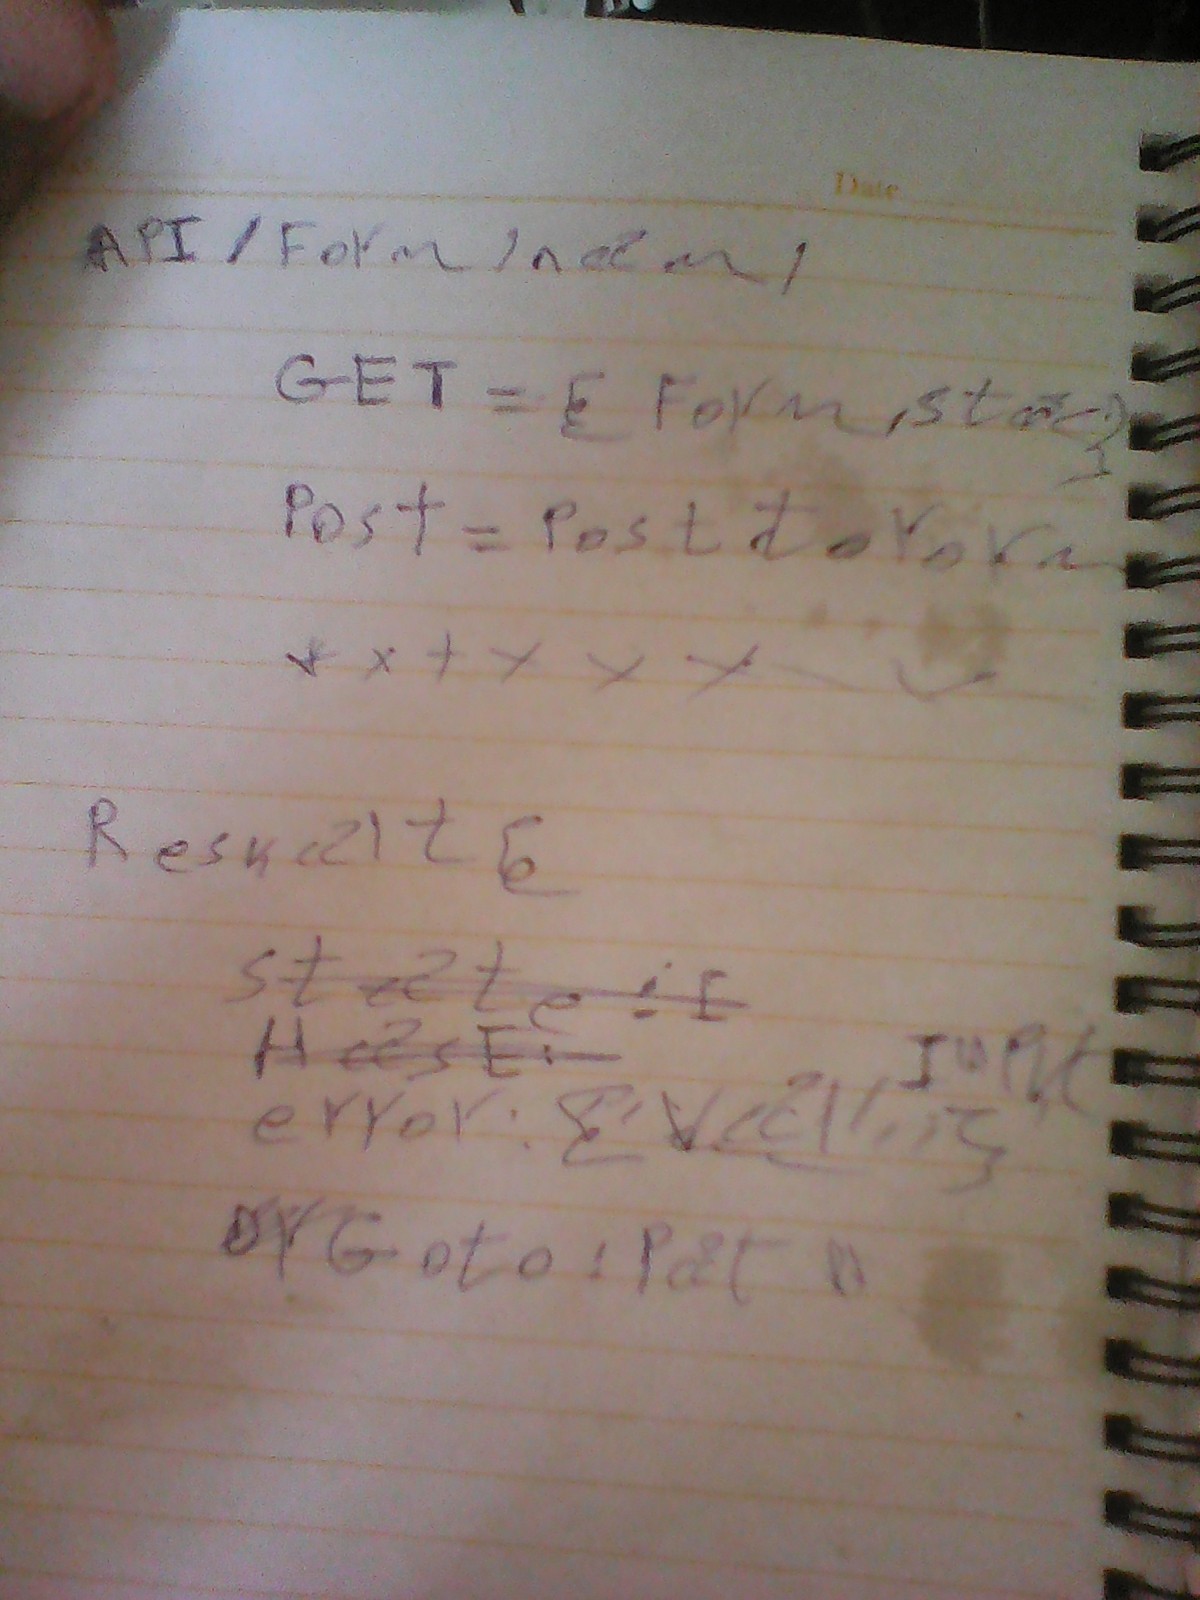 Date
API / Form / naam /
GET = { Form, stat
Post = Post to Form
* x + x x x
Resualt {
state if
HasE:
Input
error: { Val
or Goto: Pat